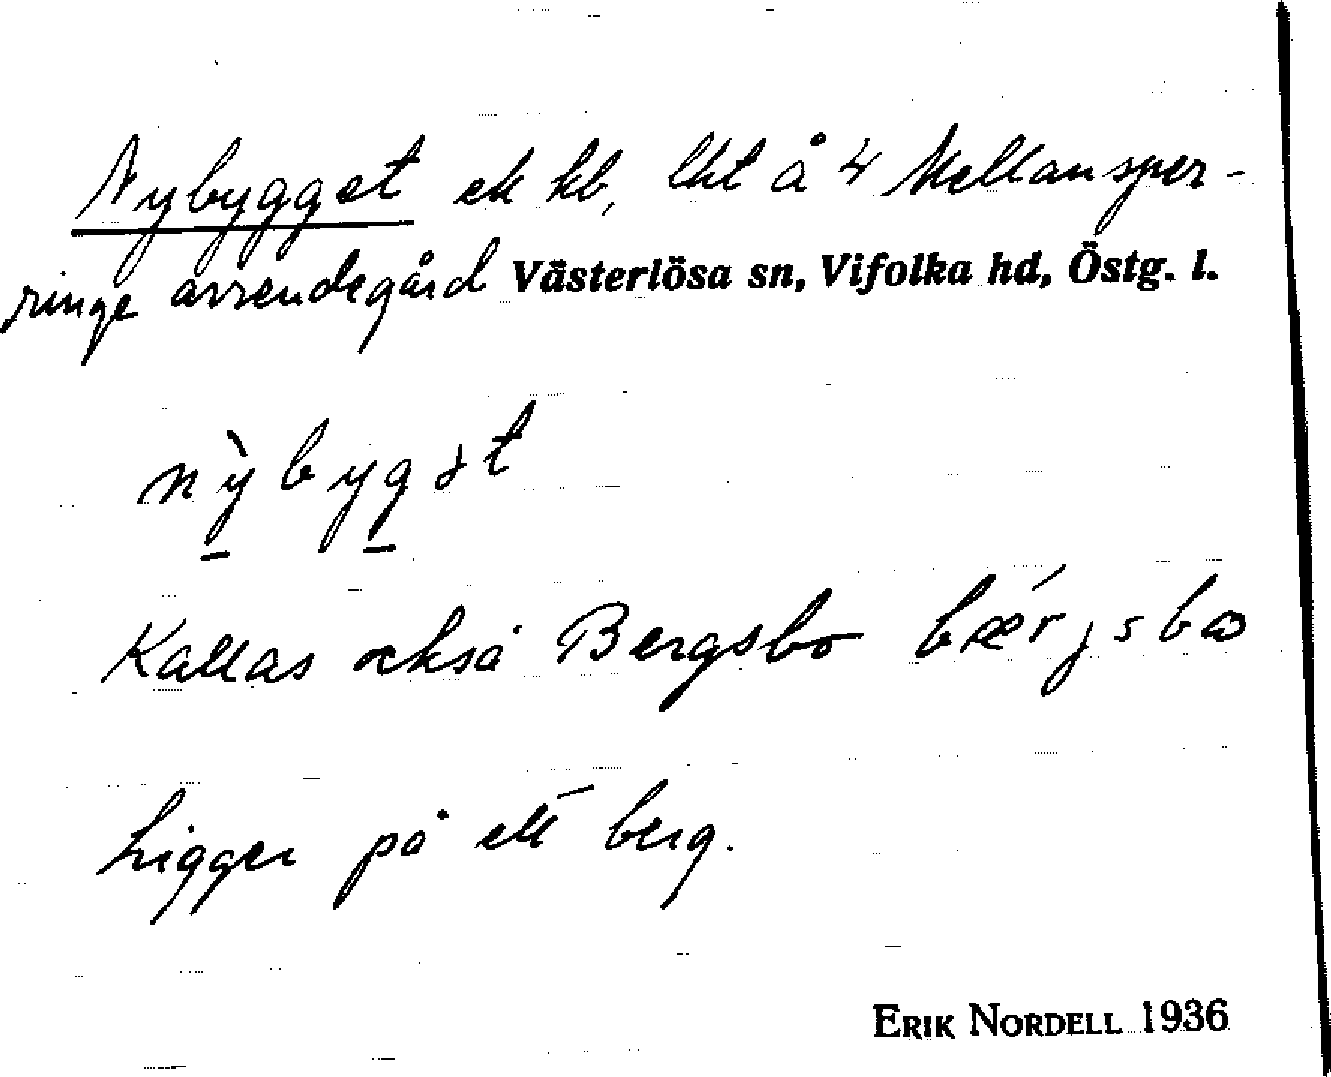 Nybygget ek kb, lht å 4 Mellansper-
ringe arrendegård Västerlösa sn, Vifolka hd, Östg. l.
nỳbygət
Kallas också Bergsbo bǽrjsbω
Ligger på ett berg.
ERIK NORDELL 1936